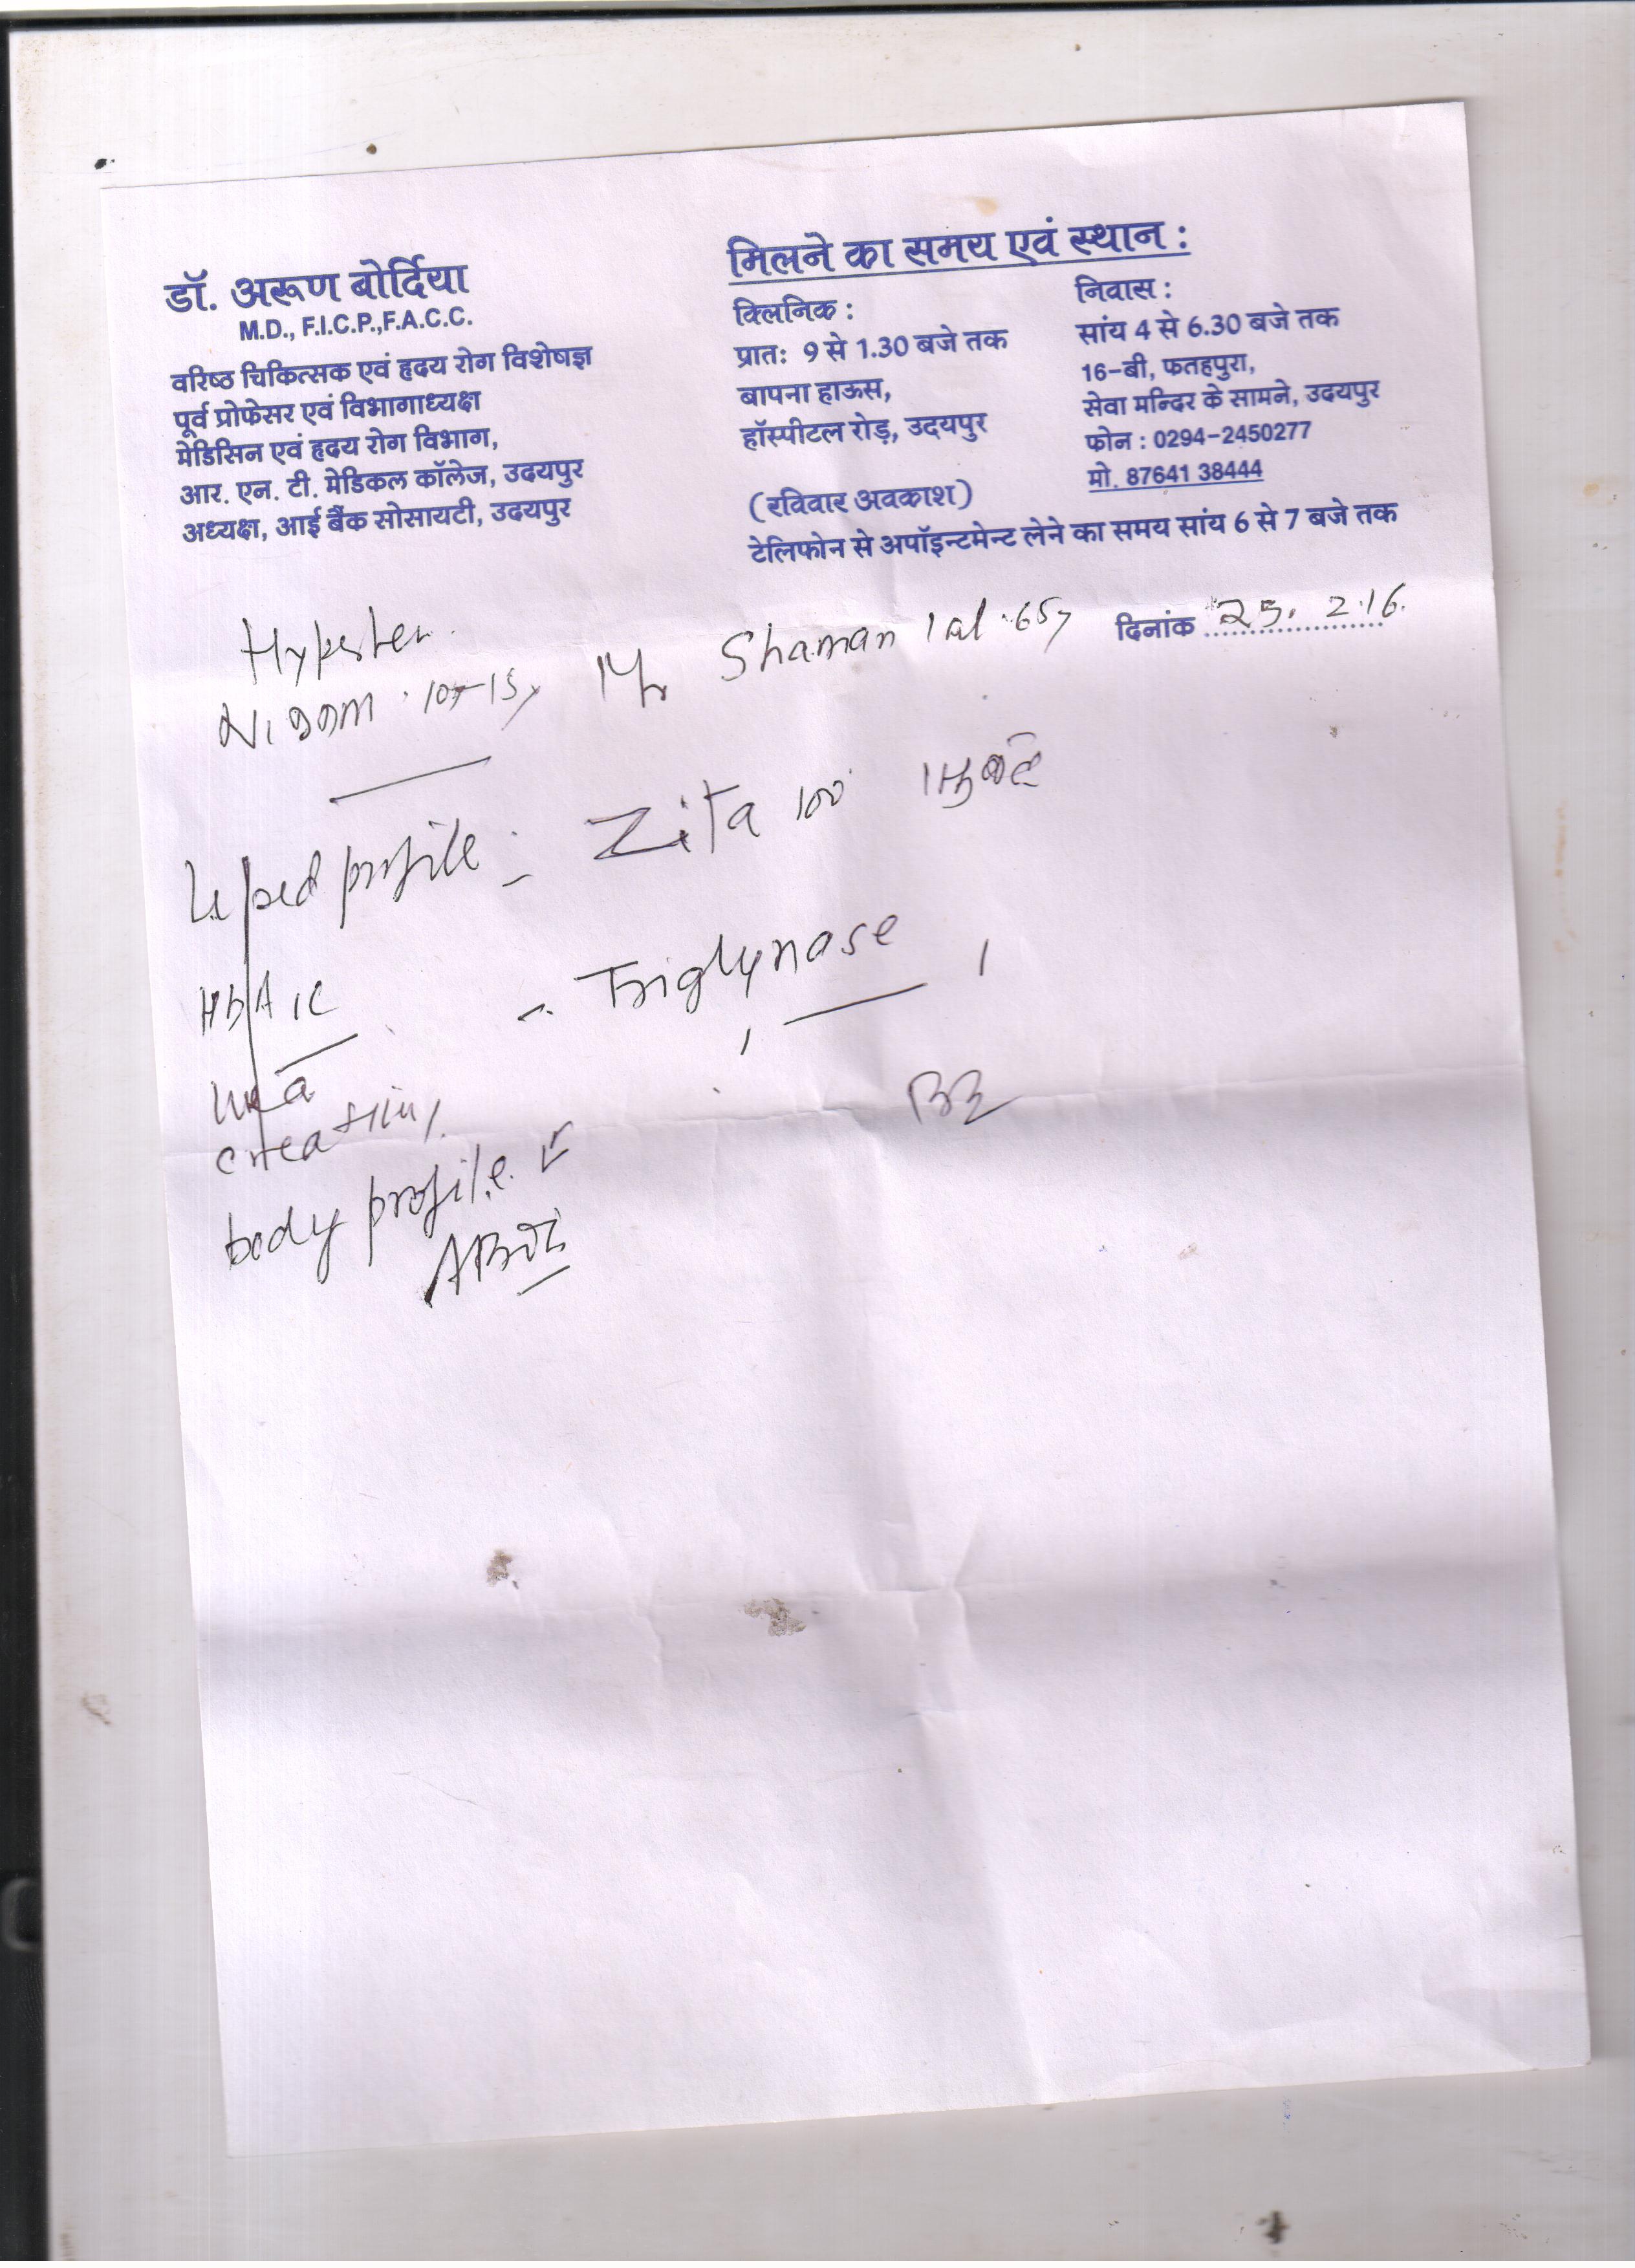 डॉ. अरूण बोर्दिया
M.D., F.I.C.P.,F.A.C.C.
वरिष्ठ चिकित्सक एवं हृदय रोग विशेषज्ञ
पूर्व प्रोफेसर एवं विभागाध्यक्ष
मेडिसिन एवं हृदय रोग विभाग,
आर. एन. टी. मेडिकल कॉलेज, उदयपुर
अध्यक्ष, आई बैंक सोसायटी, उदयपुर
मिलने का समय एवं स्थान :
क्लिनिक :
प्रातः 9 से 1.30 बजे तक
बापना हाऊस,
हॉस्पीटल रोड़, उदयपुर
(रविवार अवकाश)
निवास :
सांय 4 से 6.30 बजे तक
16-बी, फतहपुरा,
सेवा मन्दिर के सामने, उदयपुर
फोन : 0294-2450277
मो. 87641 38444
टेलिफोन से अपॉइन्टमेन्ट लेने का समय सांय 6 से 7 बजे तक
दिनांक 25. 2.16.
Shaman lal 65y
Hyperten.
10-15y
Lipid profile - Zita 100
HbA1C - Triglynase
body profile